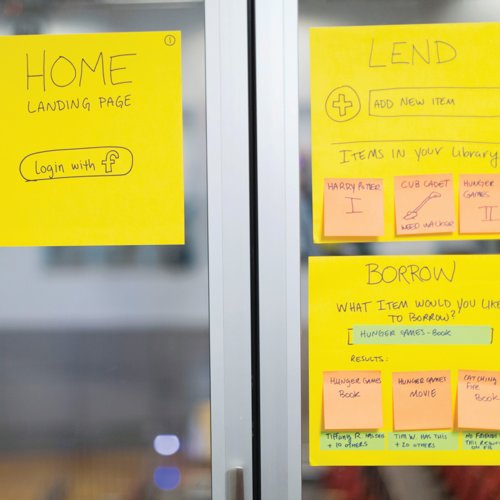 1
HOME
LANDING PAGE
Login with f
LEND
ADD NEW ITEM
ITEMS IN YOUR LIBRARY
HARRY POTTER
I
CUB CADET
WEED WACKER
HUNGER
GAMES
II
BORROW
WHAT ITEM WOULD YOU LIKE
TO BORROW?
[ HUNGER GAMES - BOOK ]
RESULTS:
HUNGER GAMES
BOOK
HUNGER GAMES
MOVIE
CATCHING
FIRE
BOOK
TIFFANY R. HAS THIS
+ 19 OTHERS
TIM W. HAS THIS
+ 20 OTHERS
NO FRIENDS
THIS
ON FB